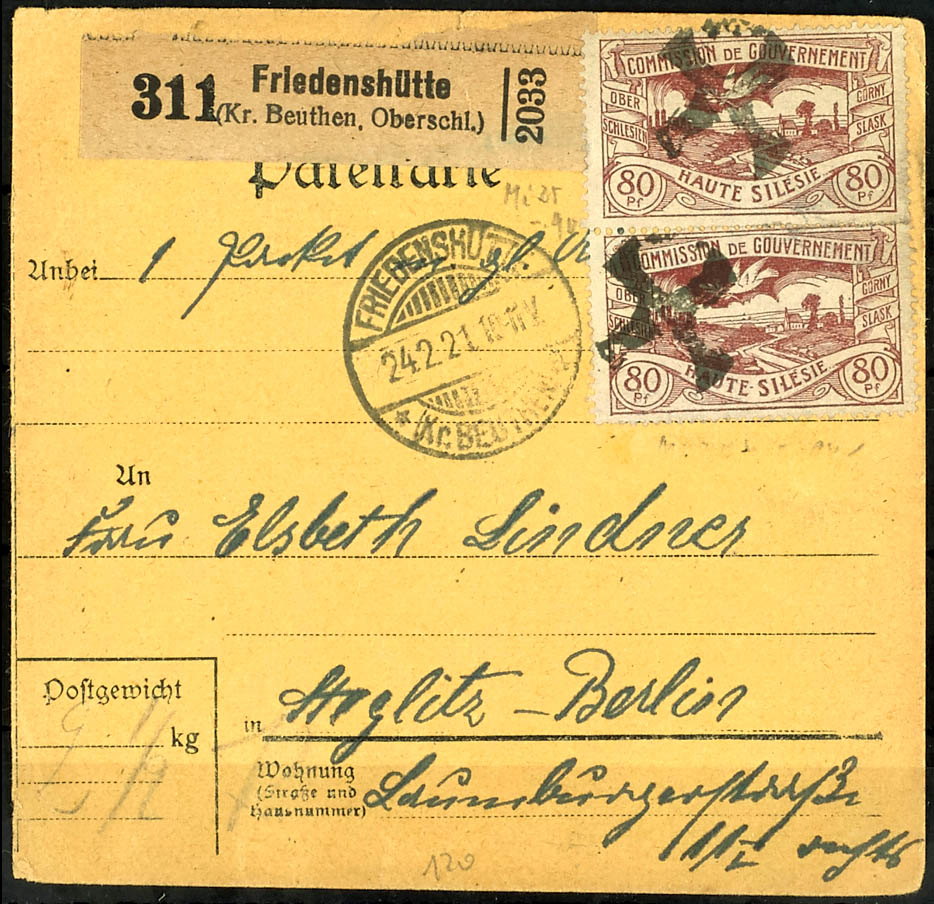 311 Friedenshütte 2033
(Kr. Beuthen, Oberschl.)
Paketkarte
COMMISSION DE GOUVERNEMENT
OBER SCHLESIEN GÓRNY ŚLĄSK
HAUTE SILÉSIE
80 Pf 80 Pf
COMMISSION DE GOUVERNEMENT
OBER SCHLESIEN GÓRNY ŚLĄSK
HAUTE SILÉSIE
80 Pf 80 Pf
Mi 25
Anbei 1 Packet
FRIEDENSHÜTTE
24.2.21. 10-11V.
* (Kr. BEUTHEN
An
Frau Elsbeth Lindner
Postgewicht
kg
in Steglitz - Berlin
Wohnung
(Straße und
Hausnummer)
rechts
120